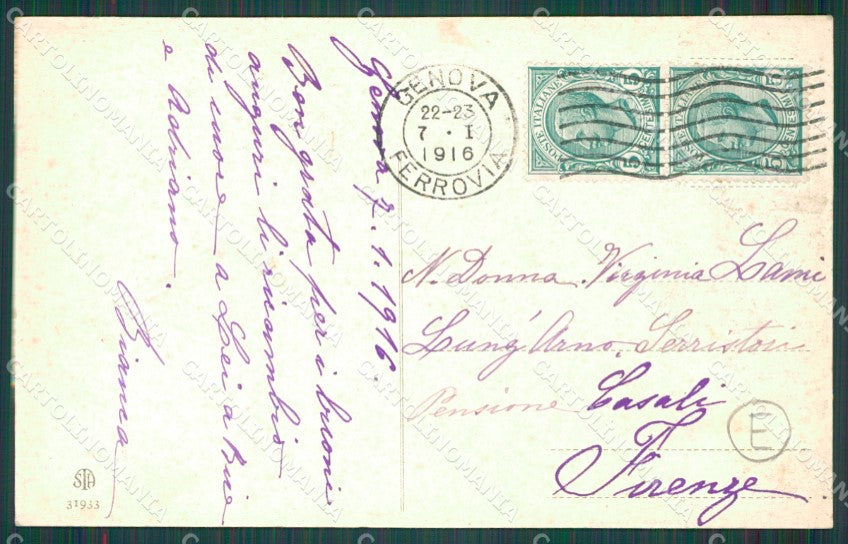 Genova 7.1.1916.
Ben grata per i buoni
auguri li ricambio
di cuore a Lei a Bice
e Adriano.
Bianca
GENOVA
22-23
7 · I
1916
FERROVIA
POSTE ITALIANE
POSTE ITALIANE
N. Donna Virginia Lami
Lung'Arno Serristori
Pensione Casali
Firenze
E
STA
31933
CARTOLINOMANIA